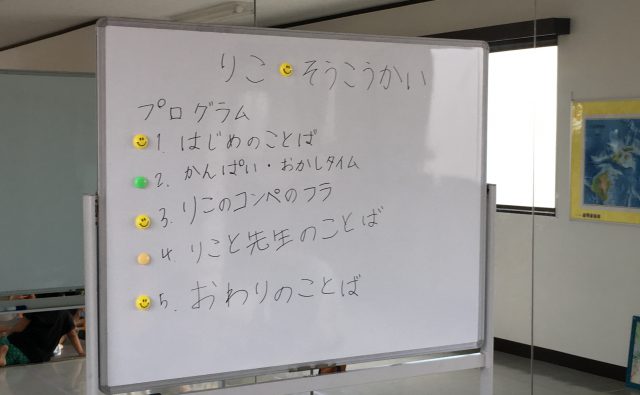 りこ そうこうかい
プログラム
1. はじめのことば
2. かんぱい・おかしタイム
3. りこのコンペのフラ
4. りこと先生のことば
5. おわりのことば